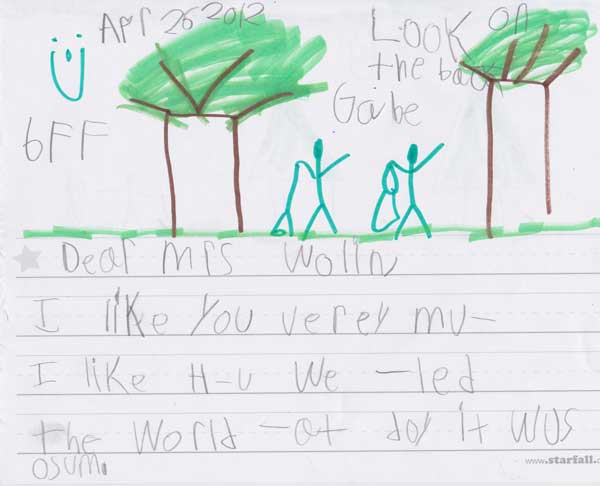 Apr 26 2012
Look on
the back
Gabe
bFF
Dear Mrs Wolin
I like You verey mu-
I like H-u We -led
the World -at day it WUS
osum.
www.starfall.c